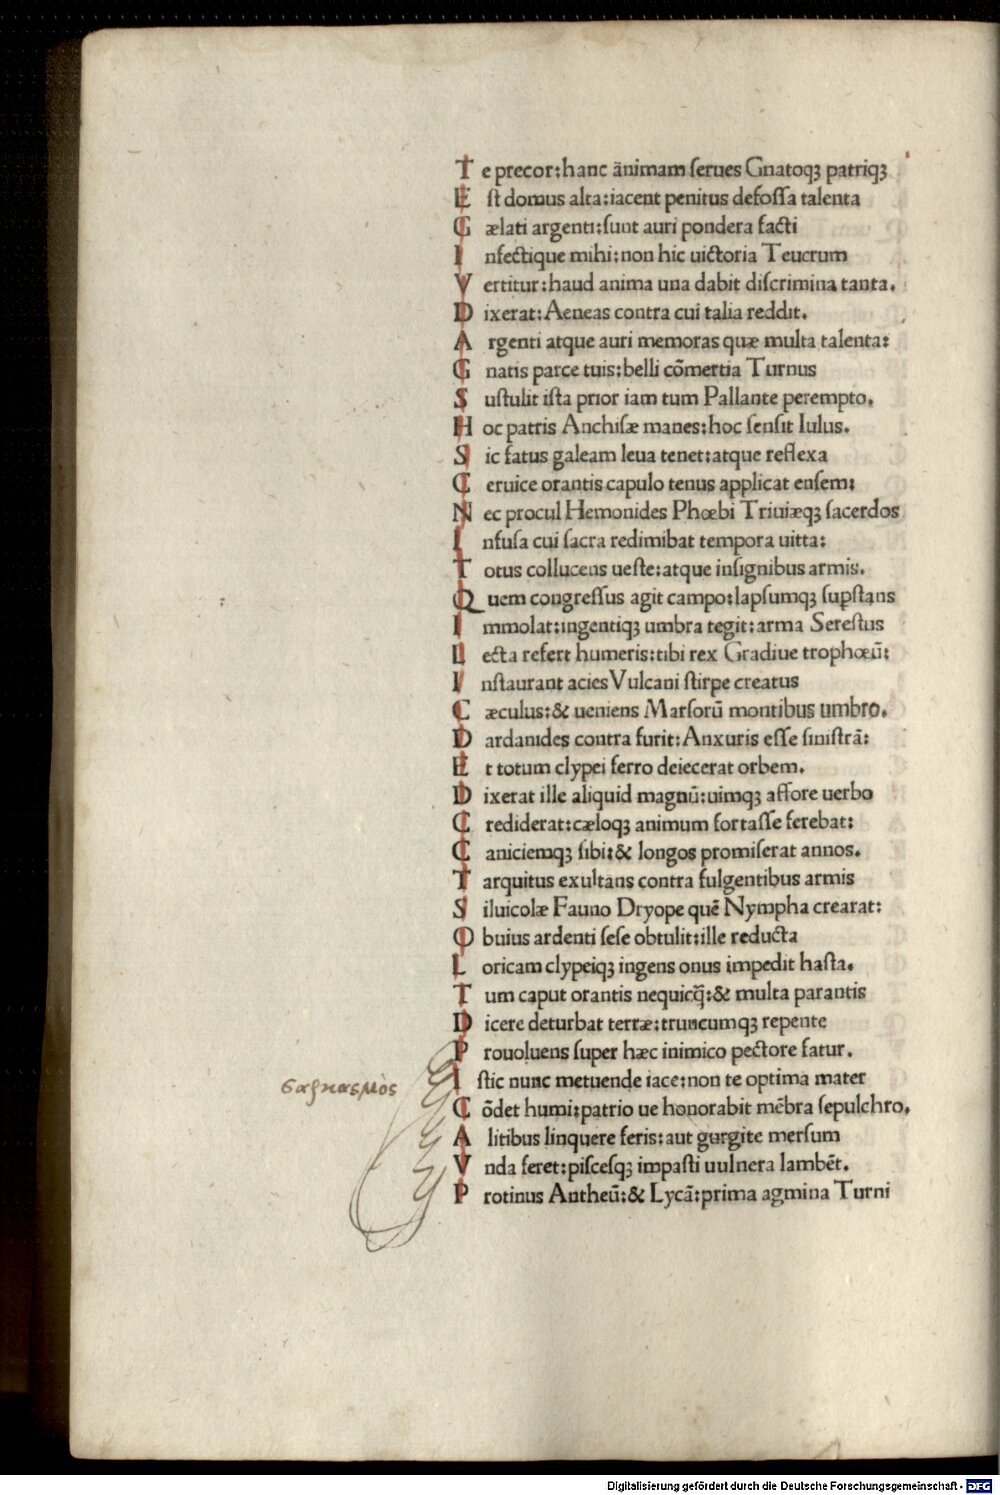 Te precor:hanc ãnimam ſerues Gnatoqꝫ patriqꝫ
Eſt domus alta:iacent penitus defoſſa talenta
Cælati argenti:ſunt auri pondera facti
Infectique mihi:non hic uictoria Teucrum
Vertitur:haud anima una dabit diſcrimina tanta.
Dixerat:Aeneas contra cui talia reddit.
Argenti atque auri memoras quæ multa talenta:
Gnatis parce tuis:belli cõmertia Turnus
Suſtulit iſta prior iam tum Pallante perempto.
Hoc patris Anchiſæ manes:hoc ſenſit Iulus.
Sic fatus galeam leua tenet:atque reflexa
Ceruice orantis capulo tenus applicat enſem:
Nec procul Hemonides Phœbi Triuiæqꝫ ſacerdos
Infuſa cui ſacra redimibat tempora uitta:
Totus collucens ueſte:atque inſignibus armis.
Quem congreſſus agit campo:lapſumqꝫ ſuꝑſtans
Immolat:ingentiqꝫ umbra tegit:arma Sereſtus
Lecta refert humeris:tibi rex Gradiue trophœũ:
Inſtaurant acies Vulcani ſtirpe creatus
Cæculus:& ueniens Marſorũ montibus umbro.
Dardanides contra furit:Anxuris eſſe ſiniſtrã:
Et totum clypei ferro deiecerat orbem.
Dixerat ille aliquid magnũ:uimqꝫ affore uerbo
Crediderat:cæloqꝫ animum fortaſſe ferebat:
Caniciemqꝫ ſibi:& longos promiſerat annos.
Tarquitus exultans contra fulgentibus armis
Siluicolæ Fauno Dryope quẽ Nympha crearat:
Obuius ardenti ſeſe obtulit:ille reducta
Loricam clypeiqꝫ ingens onus impedit haſta.
Tum caput orantis nequicq̃:& multa parantis
Dicere deturbat terræ:truncumqꝫ repente
Prouoluens ſuper hæc inimico pectore fatur.
Iſtic nunc metuende iace:non te optima mater
σαρκασμος
Cõdet humi:patrio ue honorabit mẽbra ſepulchro.
Alitibus linquere feris:aut gurgite merſum
Vnda feret:piſceſqꝫ impaſti uulnera lambẽt.
Protinus Antheũ:& Lycã:prima agmina Turni
Digitalisierung gefördert durch die Deutsche Forschungsgemeinschaft - DFG